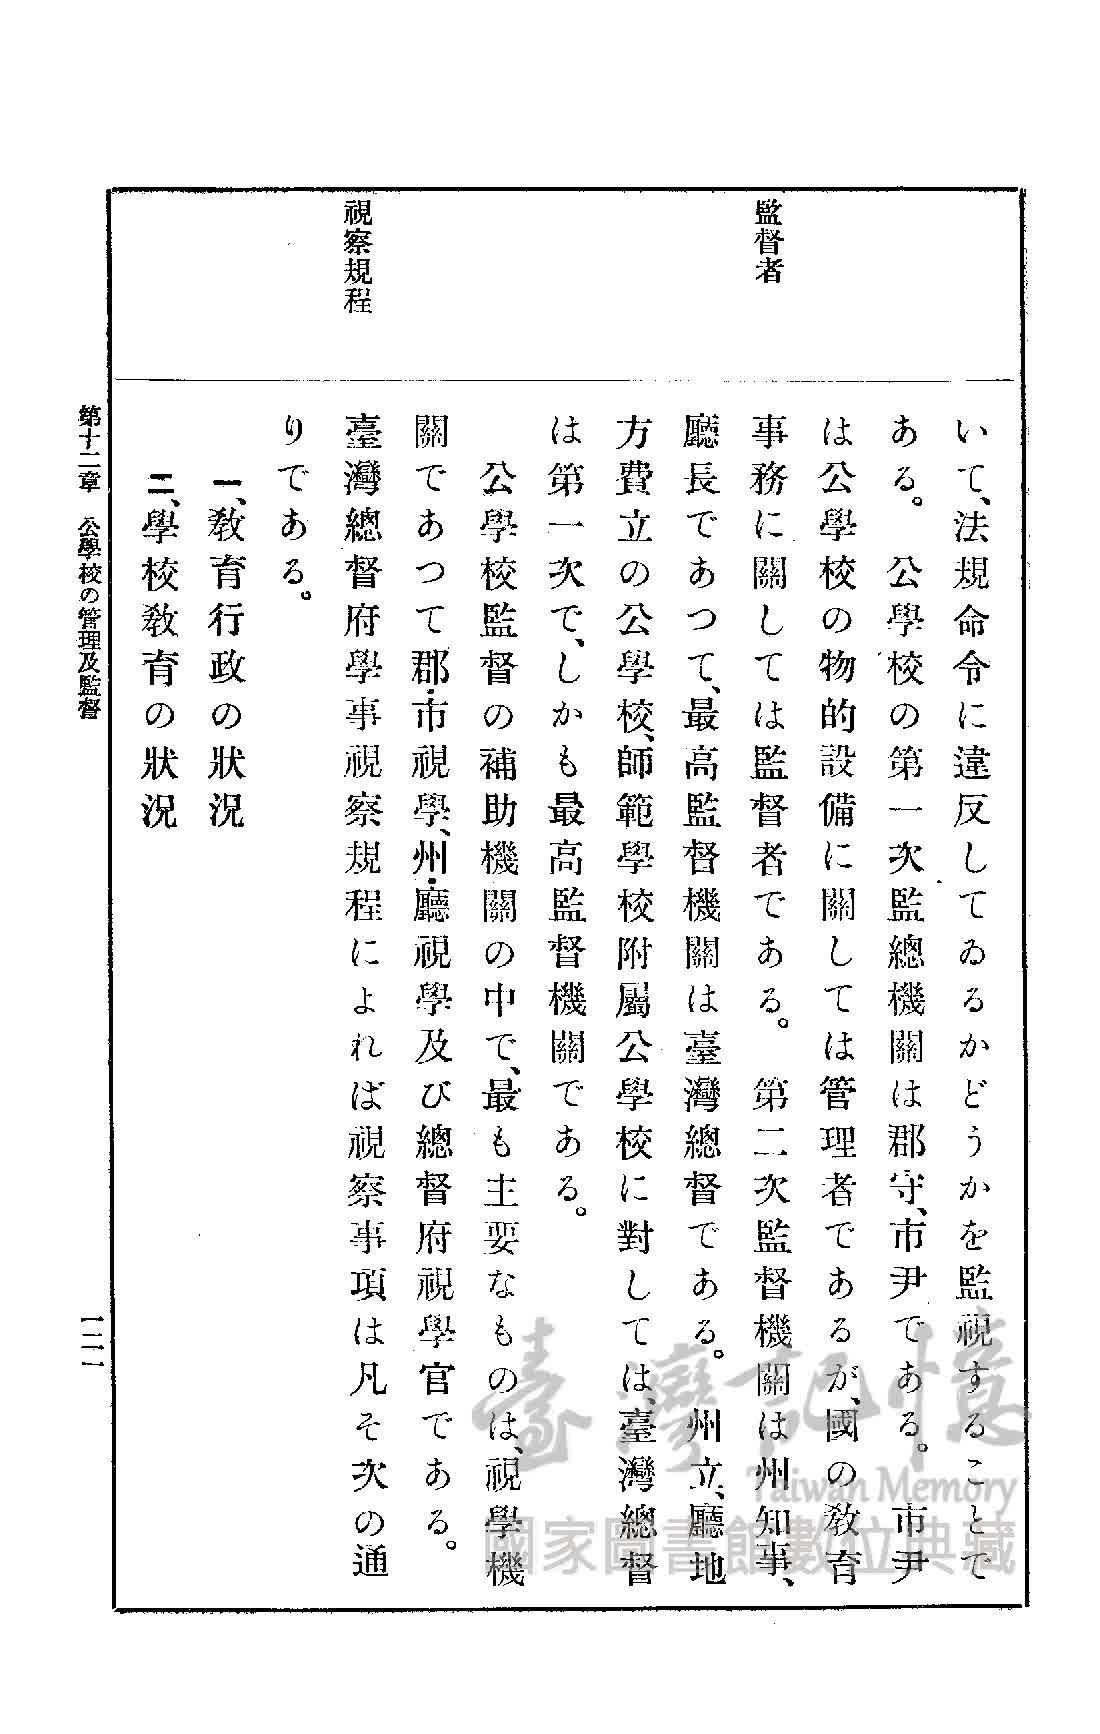 監督者
視察規程
いて、法規命令に違反してゐるかどうかを監視することで
ある。公學校の第一次監總機關は郡守、市尹である。市尹
は公學校の物的設備に關しては管理者であるが、國の敎育
事務に關しては監督者である。第二次監督機關は州知事、
廳長であつて、最高監督機關は臺灣總督である。州立、廳地
方費立の公學校、師範學校附屬公學校に對しては、臺灣總督
は第一次で、しかも最高監督機關である。
公學校監督の補助機關の中で、最も主要なものは、視學機
關であつて郡・市視學、州・廳視學及び總督府視學官である。
臺灣總督府學事視察規程によれば視察事項は凡そ次の通
りである。
一、敎育行政の狀況
二、學校敎育の狀況
第十二章 公學校の管理及監督
一二一
臺灣記憶
Taiwan Memory
國家圖書館數位典藏